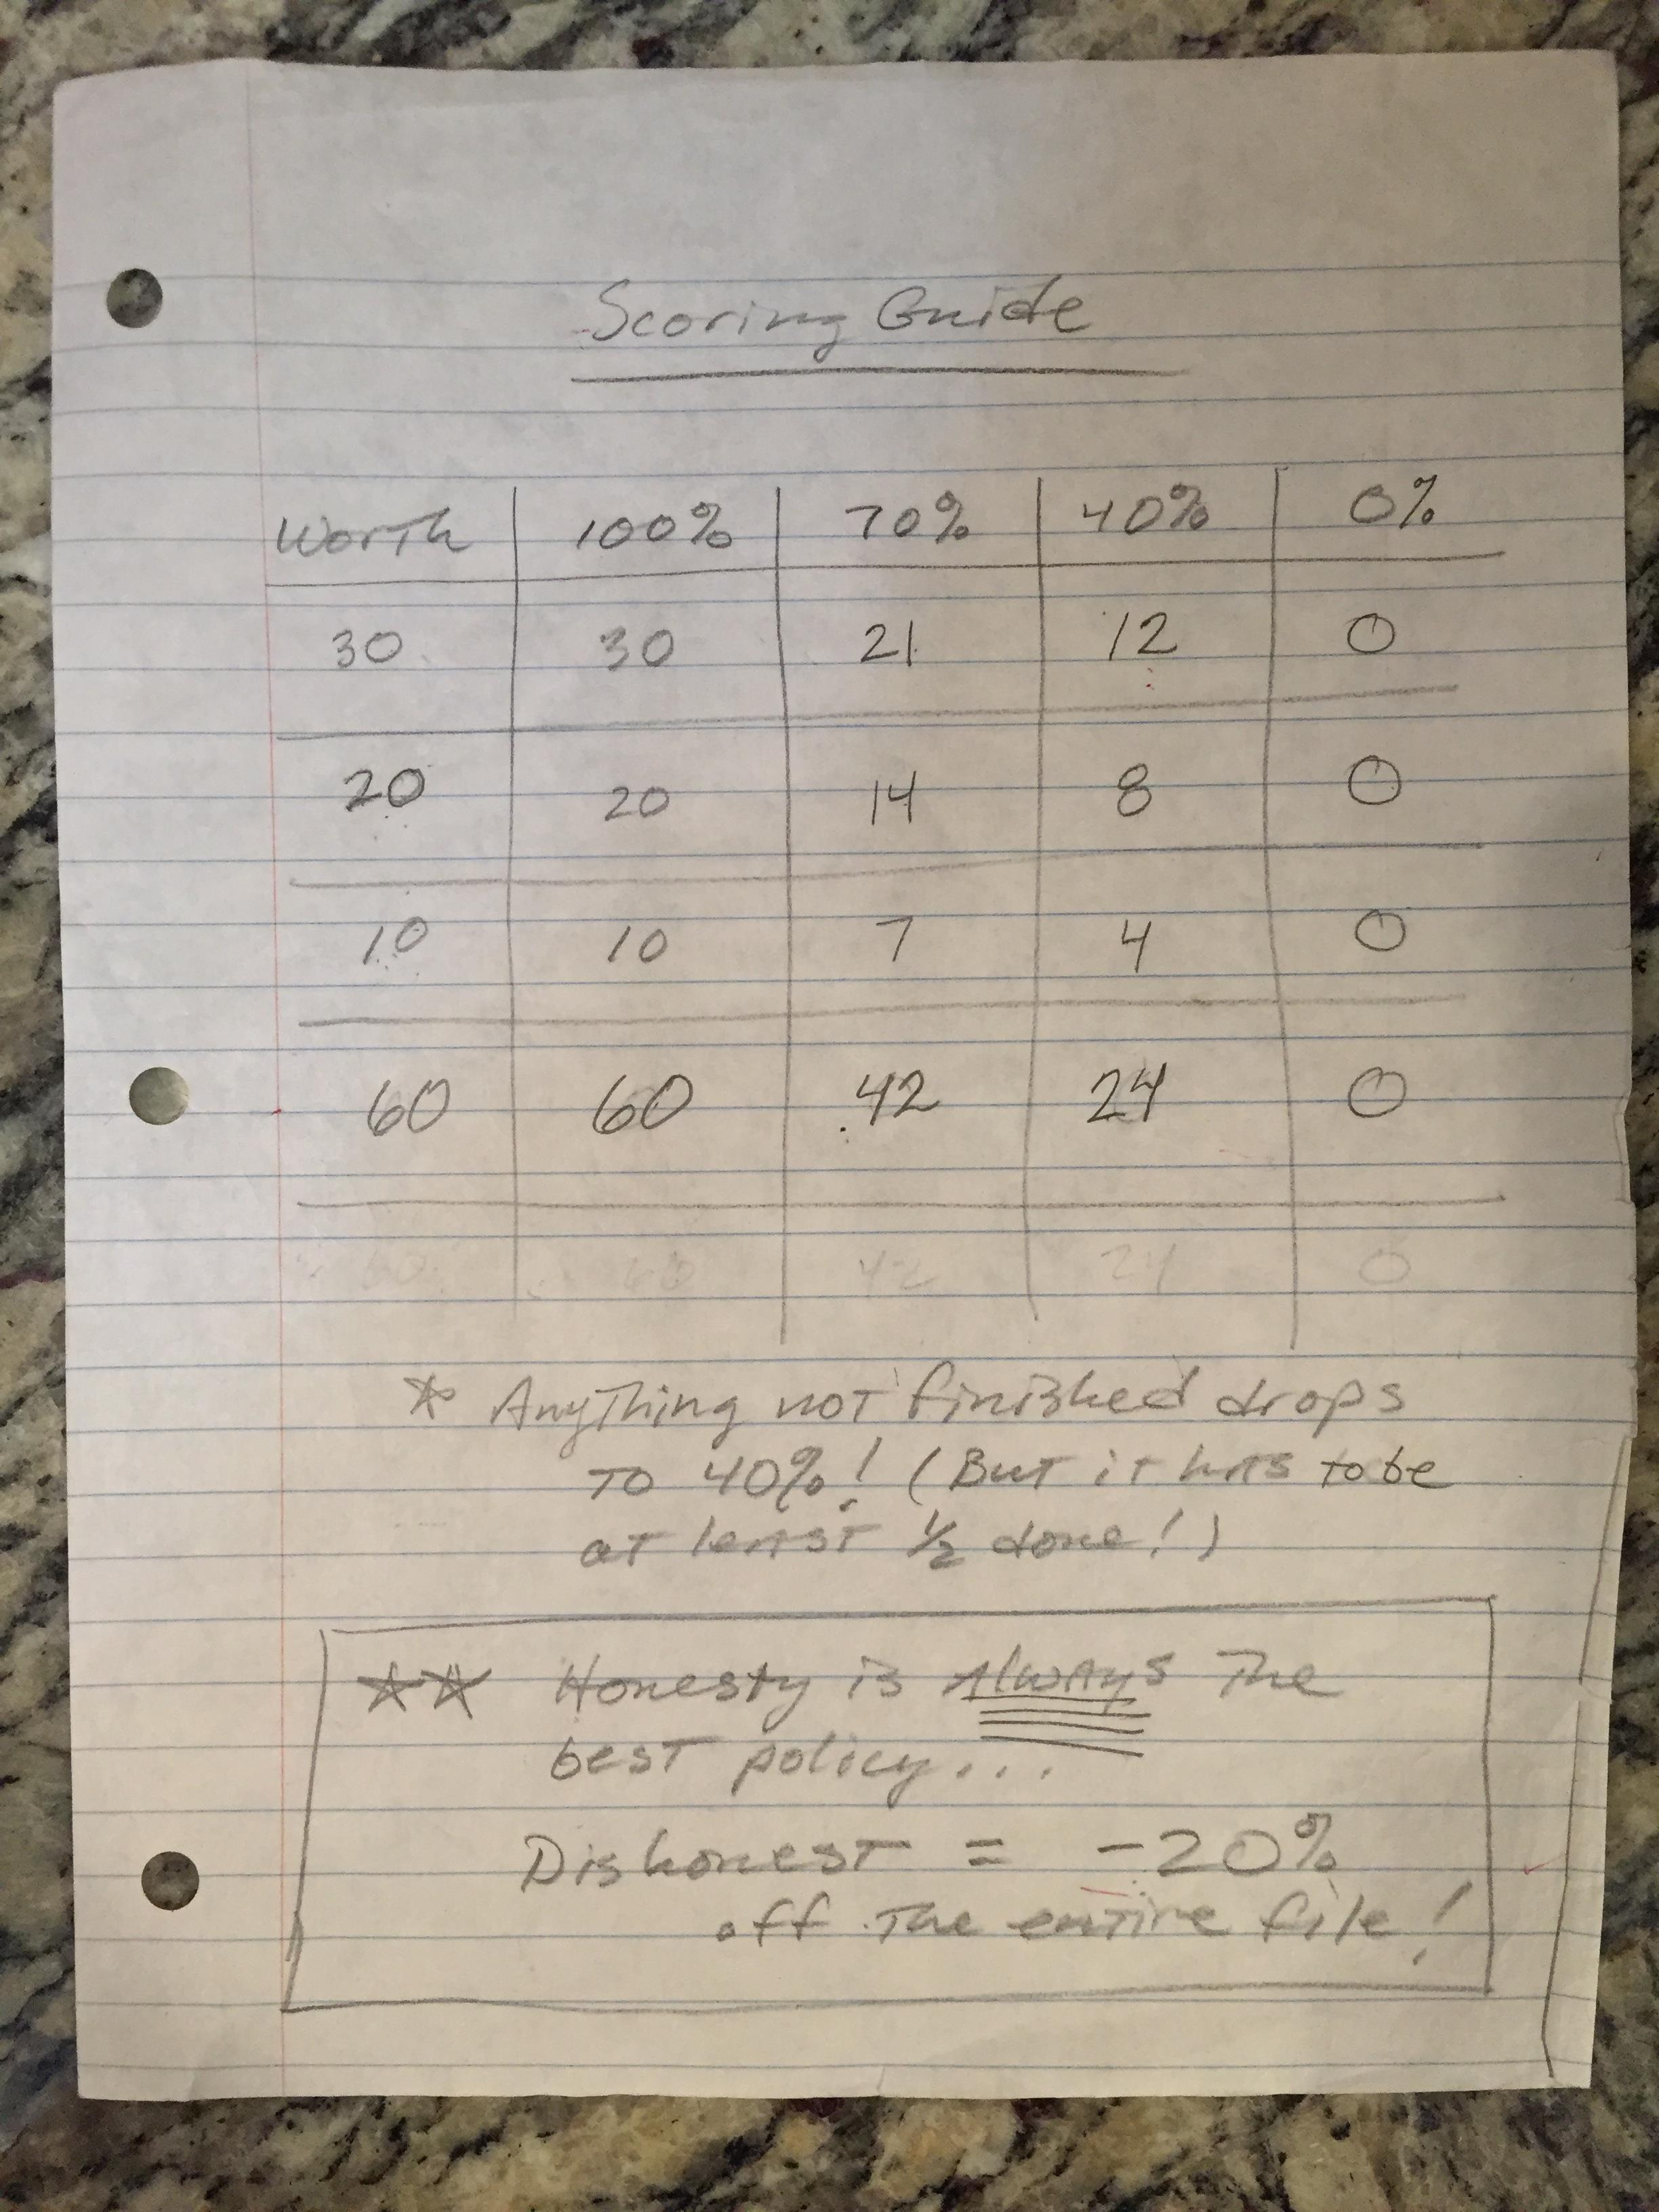 Scoring Guide
Worth 100% 70% 40% 0%
30 30 21 12 0
20 20 14 8 0
10 10 7 4 0
60 60 42 24 0
60 60 42 24 0
* Anything not finished drops
to 40%! (But it has to be
at least 1/2 done!)
** Honesty is Always The
best policy...
Dishonest = -20%
off the entire file!